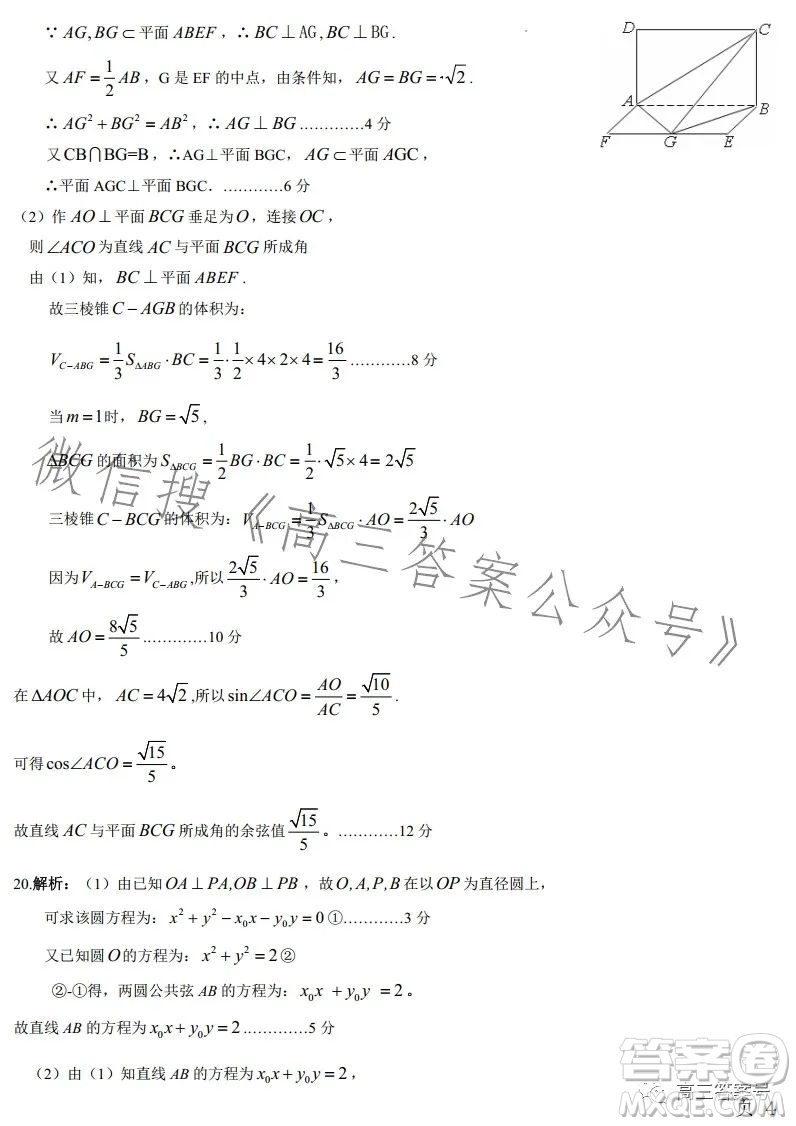 ∵ AG, BG ⊂ 平面 ABEF ，∴ BC ⊥ AG, BC ⊥ BG .
又 AF = 1/2 AB ，G 是 EF 的中点，由条件知， AG = BG = ·√2 .
∴ AG² + BG² = AB² ，∴ AG ⊥ BG …………4 分
又 CB∩BG=B，∴AG⊥平面 BGC， AG ⊂ 平面 AGC ，
∴平面 AGC⊥平面 BGC．…………6 分
D C
A B
F G E
（2）作 AO ⊥ 平面 BCG 垂足为 O，连接 OC ，
则 ∠ACO 为直线 AC 与平面 BCG 所成角
由（1）知， BC ⊥ 平面 ABEF .
故三棱锥 C − AGB 的体积为：
V_{C−ABG} = 1/3 S_{ΔABG} · BC = 1/3 · 1/2 × 4 × 2 × 4 = 16/3 …………8 分
当 m = 1 时， BG = √5 ,
ΔBCG 的面积为 S_{ΔBCG} = 1/2 BG · BC = 1/2 · √5 × 4 = 2√5
三棱锥 C − BCG 的体积为： V_{A−BCG} = 1/3 S_{ΔBCG} · AO = 2√5/3 · AO
因为 V_{A−BCG} = V_{C−ABG} ,所以 2√5/3 · AO = 16/3 ,
故 AO = 8√5/5 …………10 分
在 ΔAOC 中， AC = 4√2 ,所以 sin∠ACO = AO/AC = √10/5 .
可得 cos∠ACO = √15/5 。
故直线 AC 与平面 BCG 所成角的余弦值 √15/5 。…………12 分
20.解析：（1）由已知 OA ⊥ PA, OB ⊥ PB ，故 O, A, P, B 在以 OP 为直径圆上，
可求该圆方程为： x² + y² − x₀x − y₀y = 0 ①…………3 分
又已知圆 O 的方程为： x² + y² = 2 ②
②-①得，两圆公共弦 AB 的方程为： x₀x + y₀y = 2 。
故直线 AB 的方程为 x₀x + y₀y = 2 …………5 分
（2）由（1）知直线 AB 的方程为 x₀x + y₀y = 2 ，
微信搜《高三答案公众号》
高三答案号
答案圈
MXQE.COM
页 4